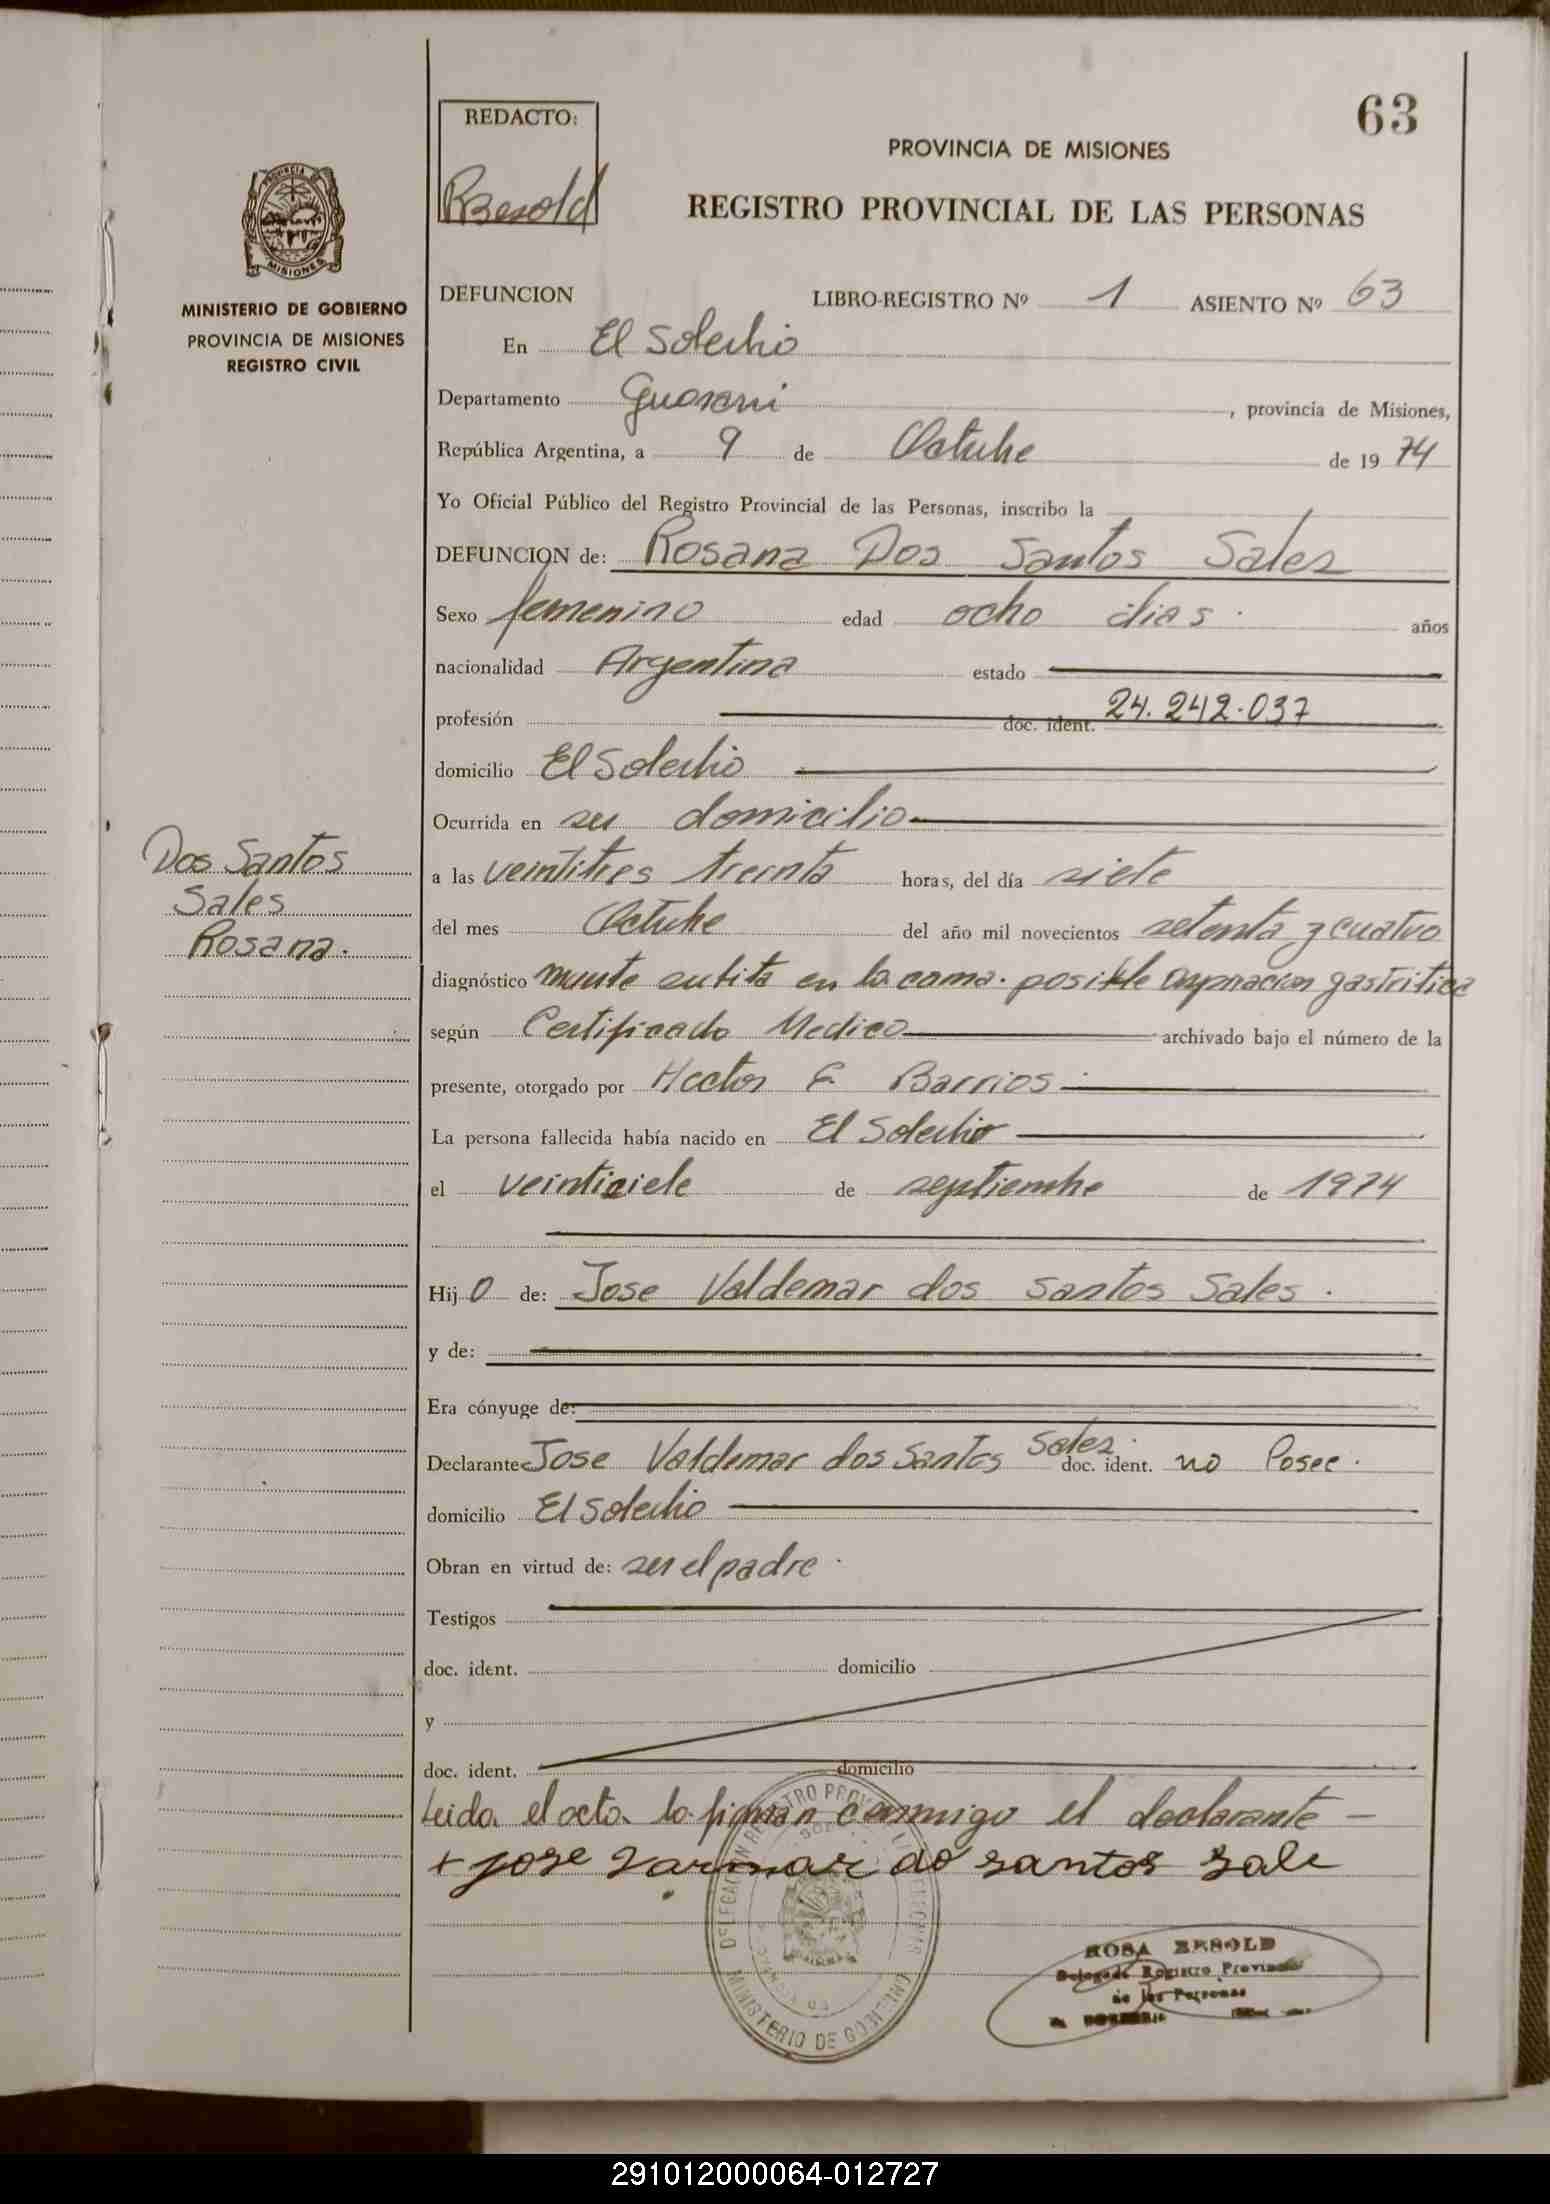 63
REDACTO:
RBesold
PROVINCIA DE MISIONES
REGISTRO PROVINCIAL DE LAS PERSONAS
PROVINCIA DE
MISIONES
MINISTERIO DE GOBIERNO
PROVINCIA DE MISIONES
REGISTRO CIVIL
DEFUNCION LIBRO-REGISTRO Nº 1 ASIENTO Nº 63
En El Soberbio
Departamento Guarani , provincia de Misiones,
República Argentina, a 9 de Octubre de 19 74
Yo Oficial Público del Registro Provincial de las Personas, inscribo la
DEFUNCION de: Rosana Dos Santos Sales
Sexo femenino edad ocho dias. años
nacionalidad Argentina estado
profesión doc. ident. 24.242.037
domicilio El Soberbio
Ocurrida en su domicilio
a las veintitres treinta horas, del día siete
del mes Octubre del año mil novecientos setenta y cuatro
diagnóstico muerte subita en la cama. posible gastritica
según Certificado Medico archivado bajo el número de la
presente, otorgado por Hector F. Barrios
La persona fallecida había nacido en El Soberbio
el veintisiete de septiembre de 1974
Hij o de: Jose Valdemar dos Santos Sales.
y de:
Era cónyuge de:
Declarante Jose Valdemar dos Santos Sales. doc. ident. no Posee.
domicilio El Soberbio
Obran en virtud de: ser el padre.
Testigos
doc. ident. domicilio
y
doc. ident. domicilio
Leida el acta la firman conmigo el declarante
+ jose do santos sale
Dos Santos
Sales
Rosana.
MINISTERIO DE GOBIERNO
ROSA BESOLD
Delegada Registro Provincial
de las Personas
291012000064-012727